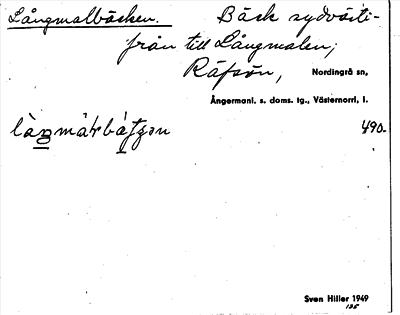 Långmalbäcken. Bäck sydväst-
från till Långmalen;
Räfsön, Nordingrå sn,
Ångermanl. s. doms. tg., Västernorrl. l.
490.
Sven Hiller 1949
135